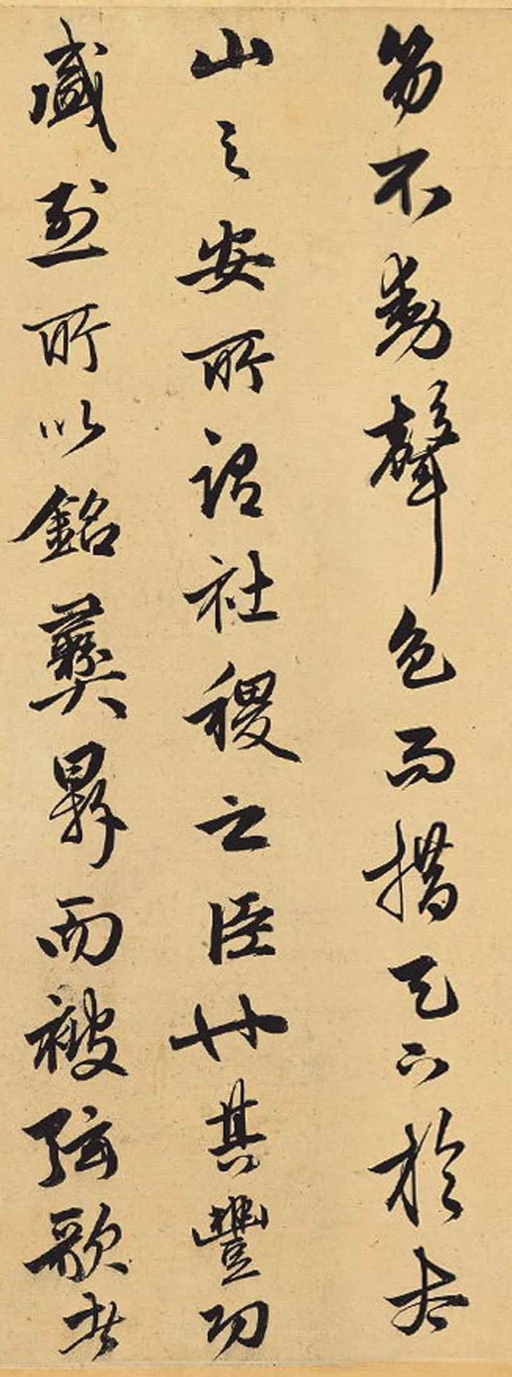 笏不動聲色而措天下於泰
山之安所謂社稷之臣其豐功
盛烈所以銘彝鼎而被弦歌者